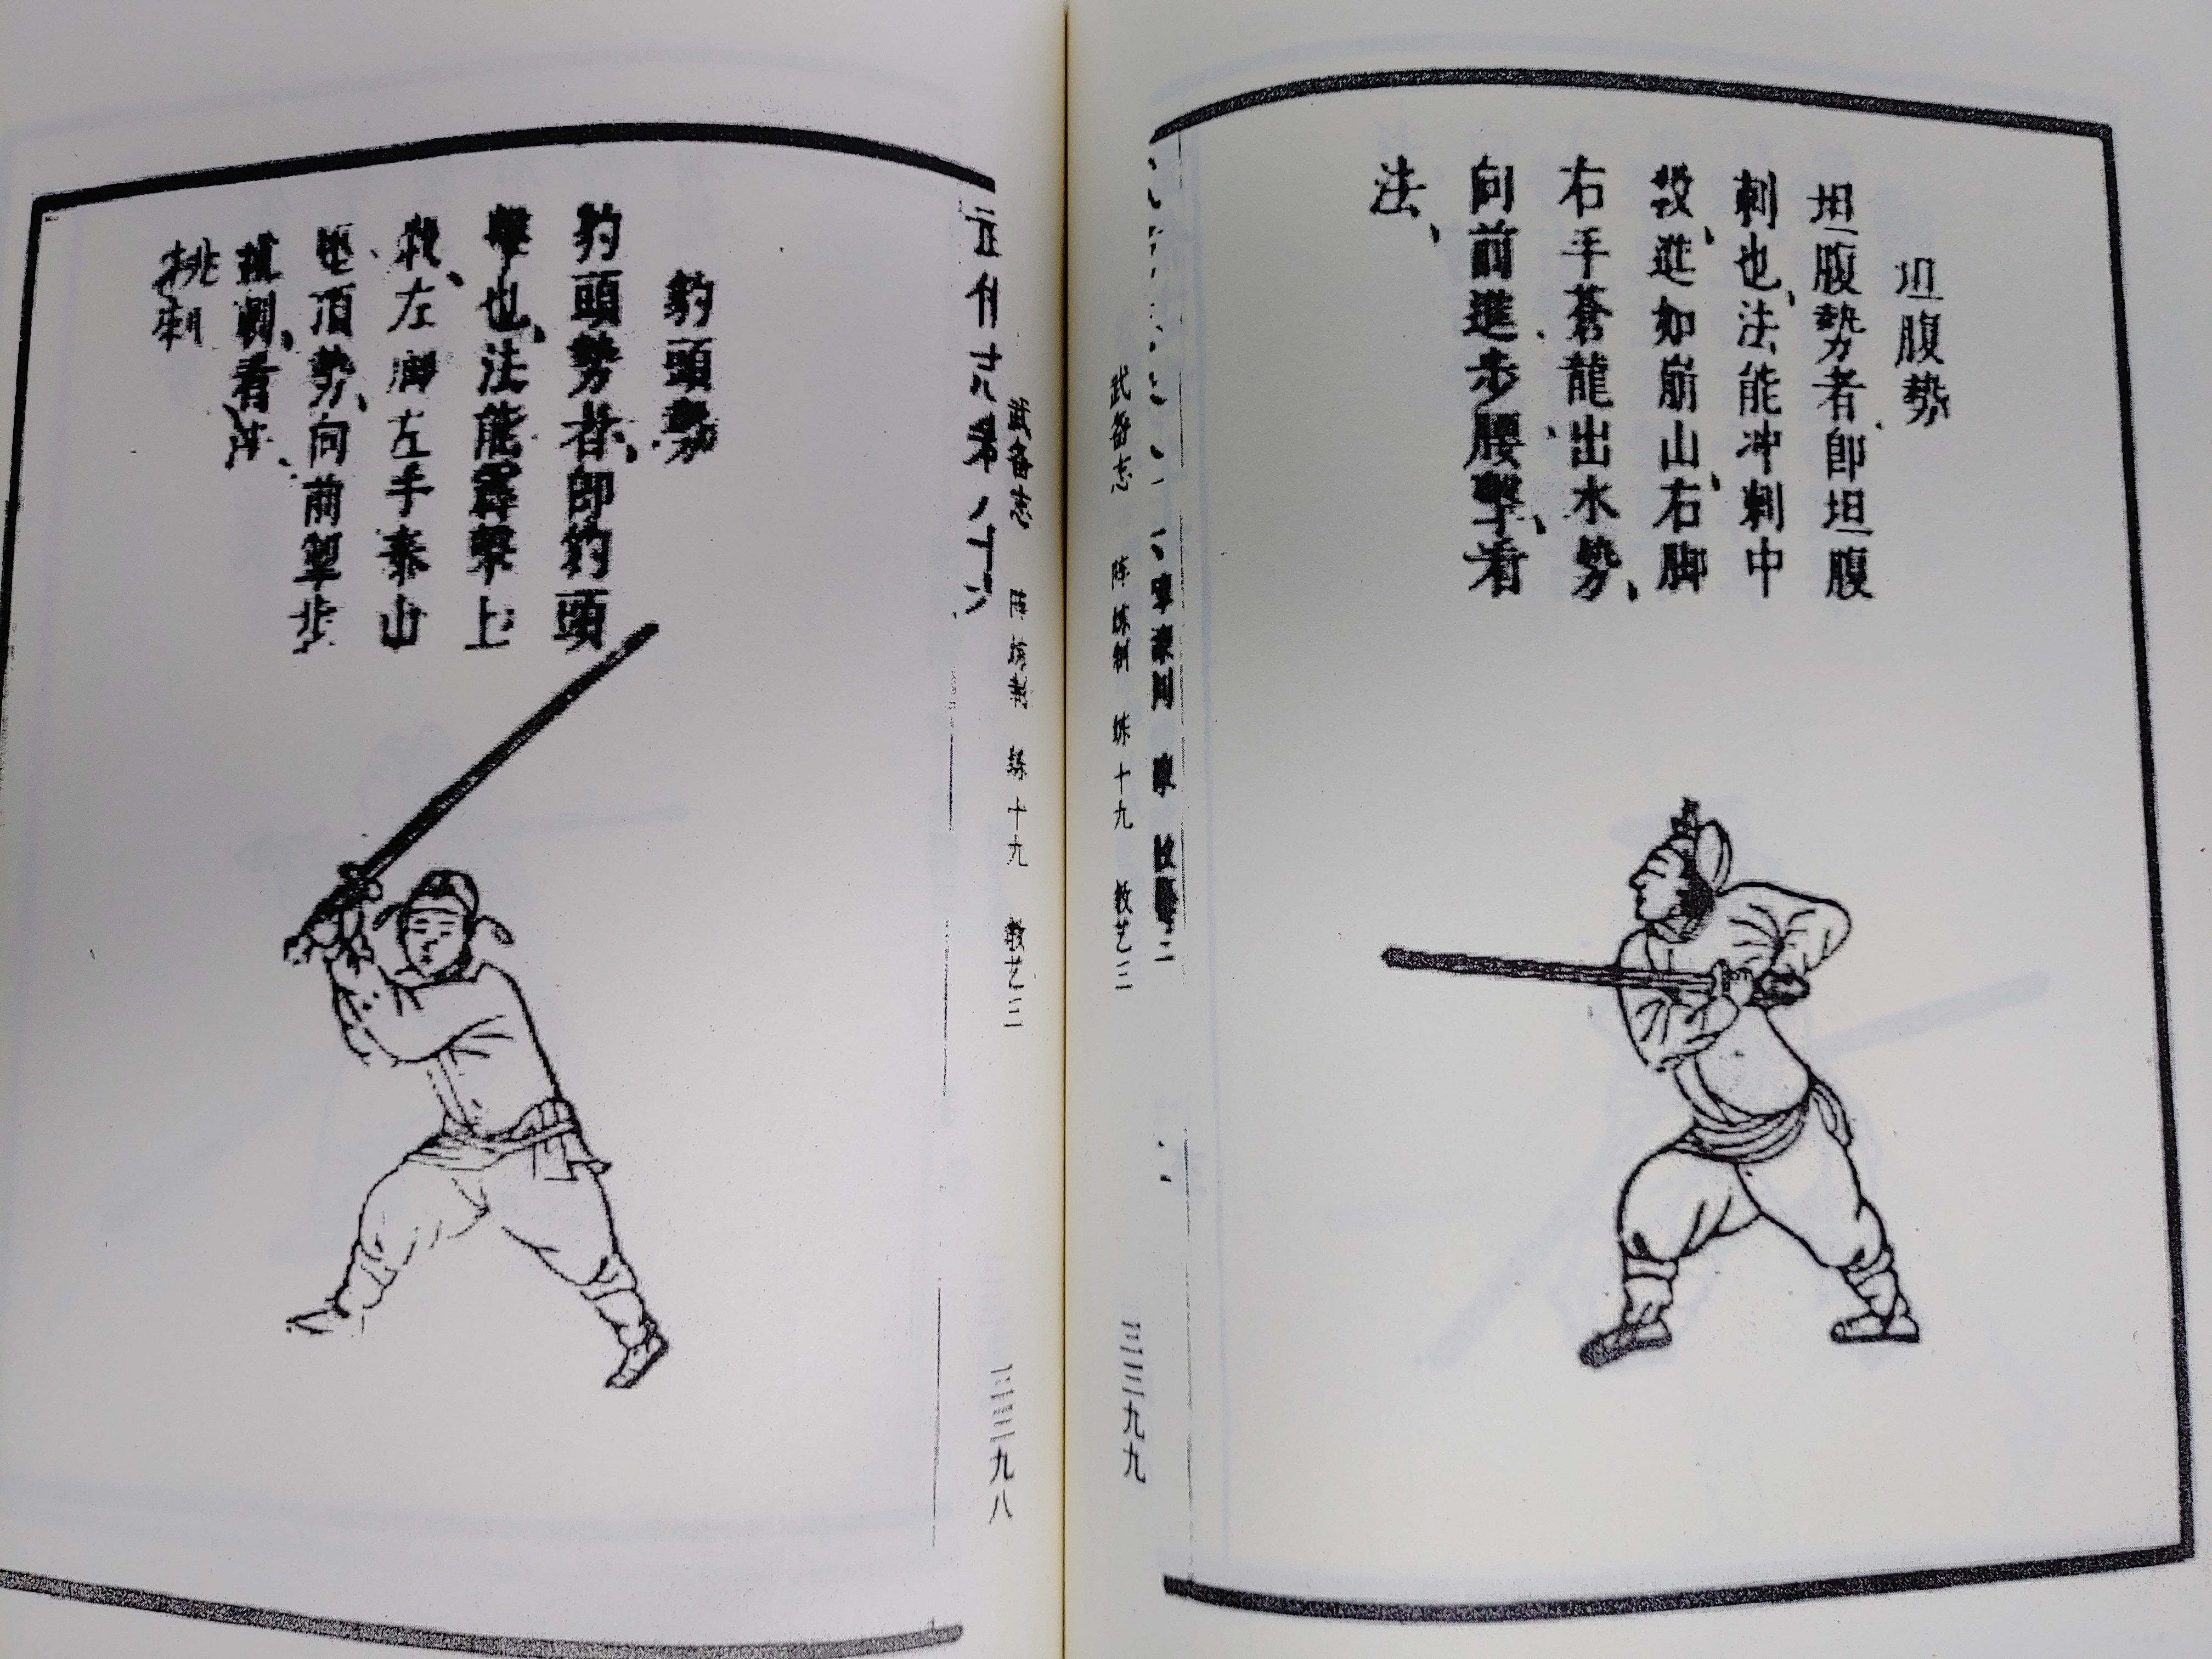 豹頭勢
豹頭勢者、即豹頭
擊也、法能霹擊上
殺、左脚左手泰山
壓頂勢、向前掣步
挑刺、看法、
挑刺
武备志 阵练制 练十九 教艺三
坦腹勢
坦腹勢者、即坦腹
刺也、法能冲刺中
殺、進如崩山、右脚
右手蒼龍出水勢、
向前進步、腰擊、看
法、
武备志 阵练制 练十九 教艺三